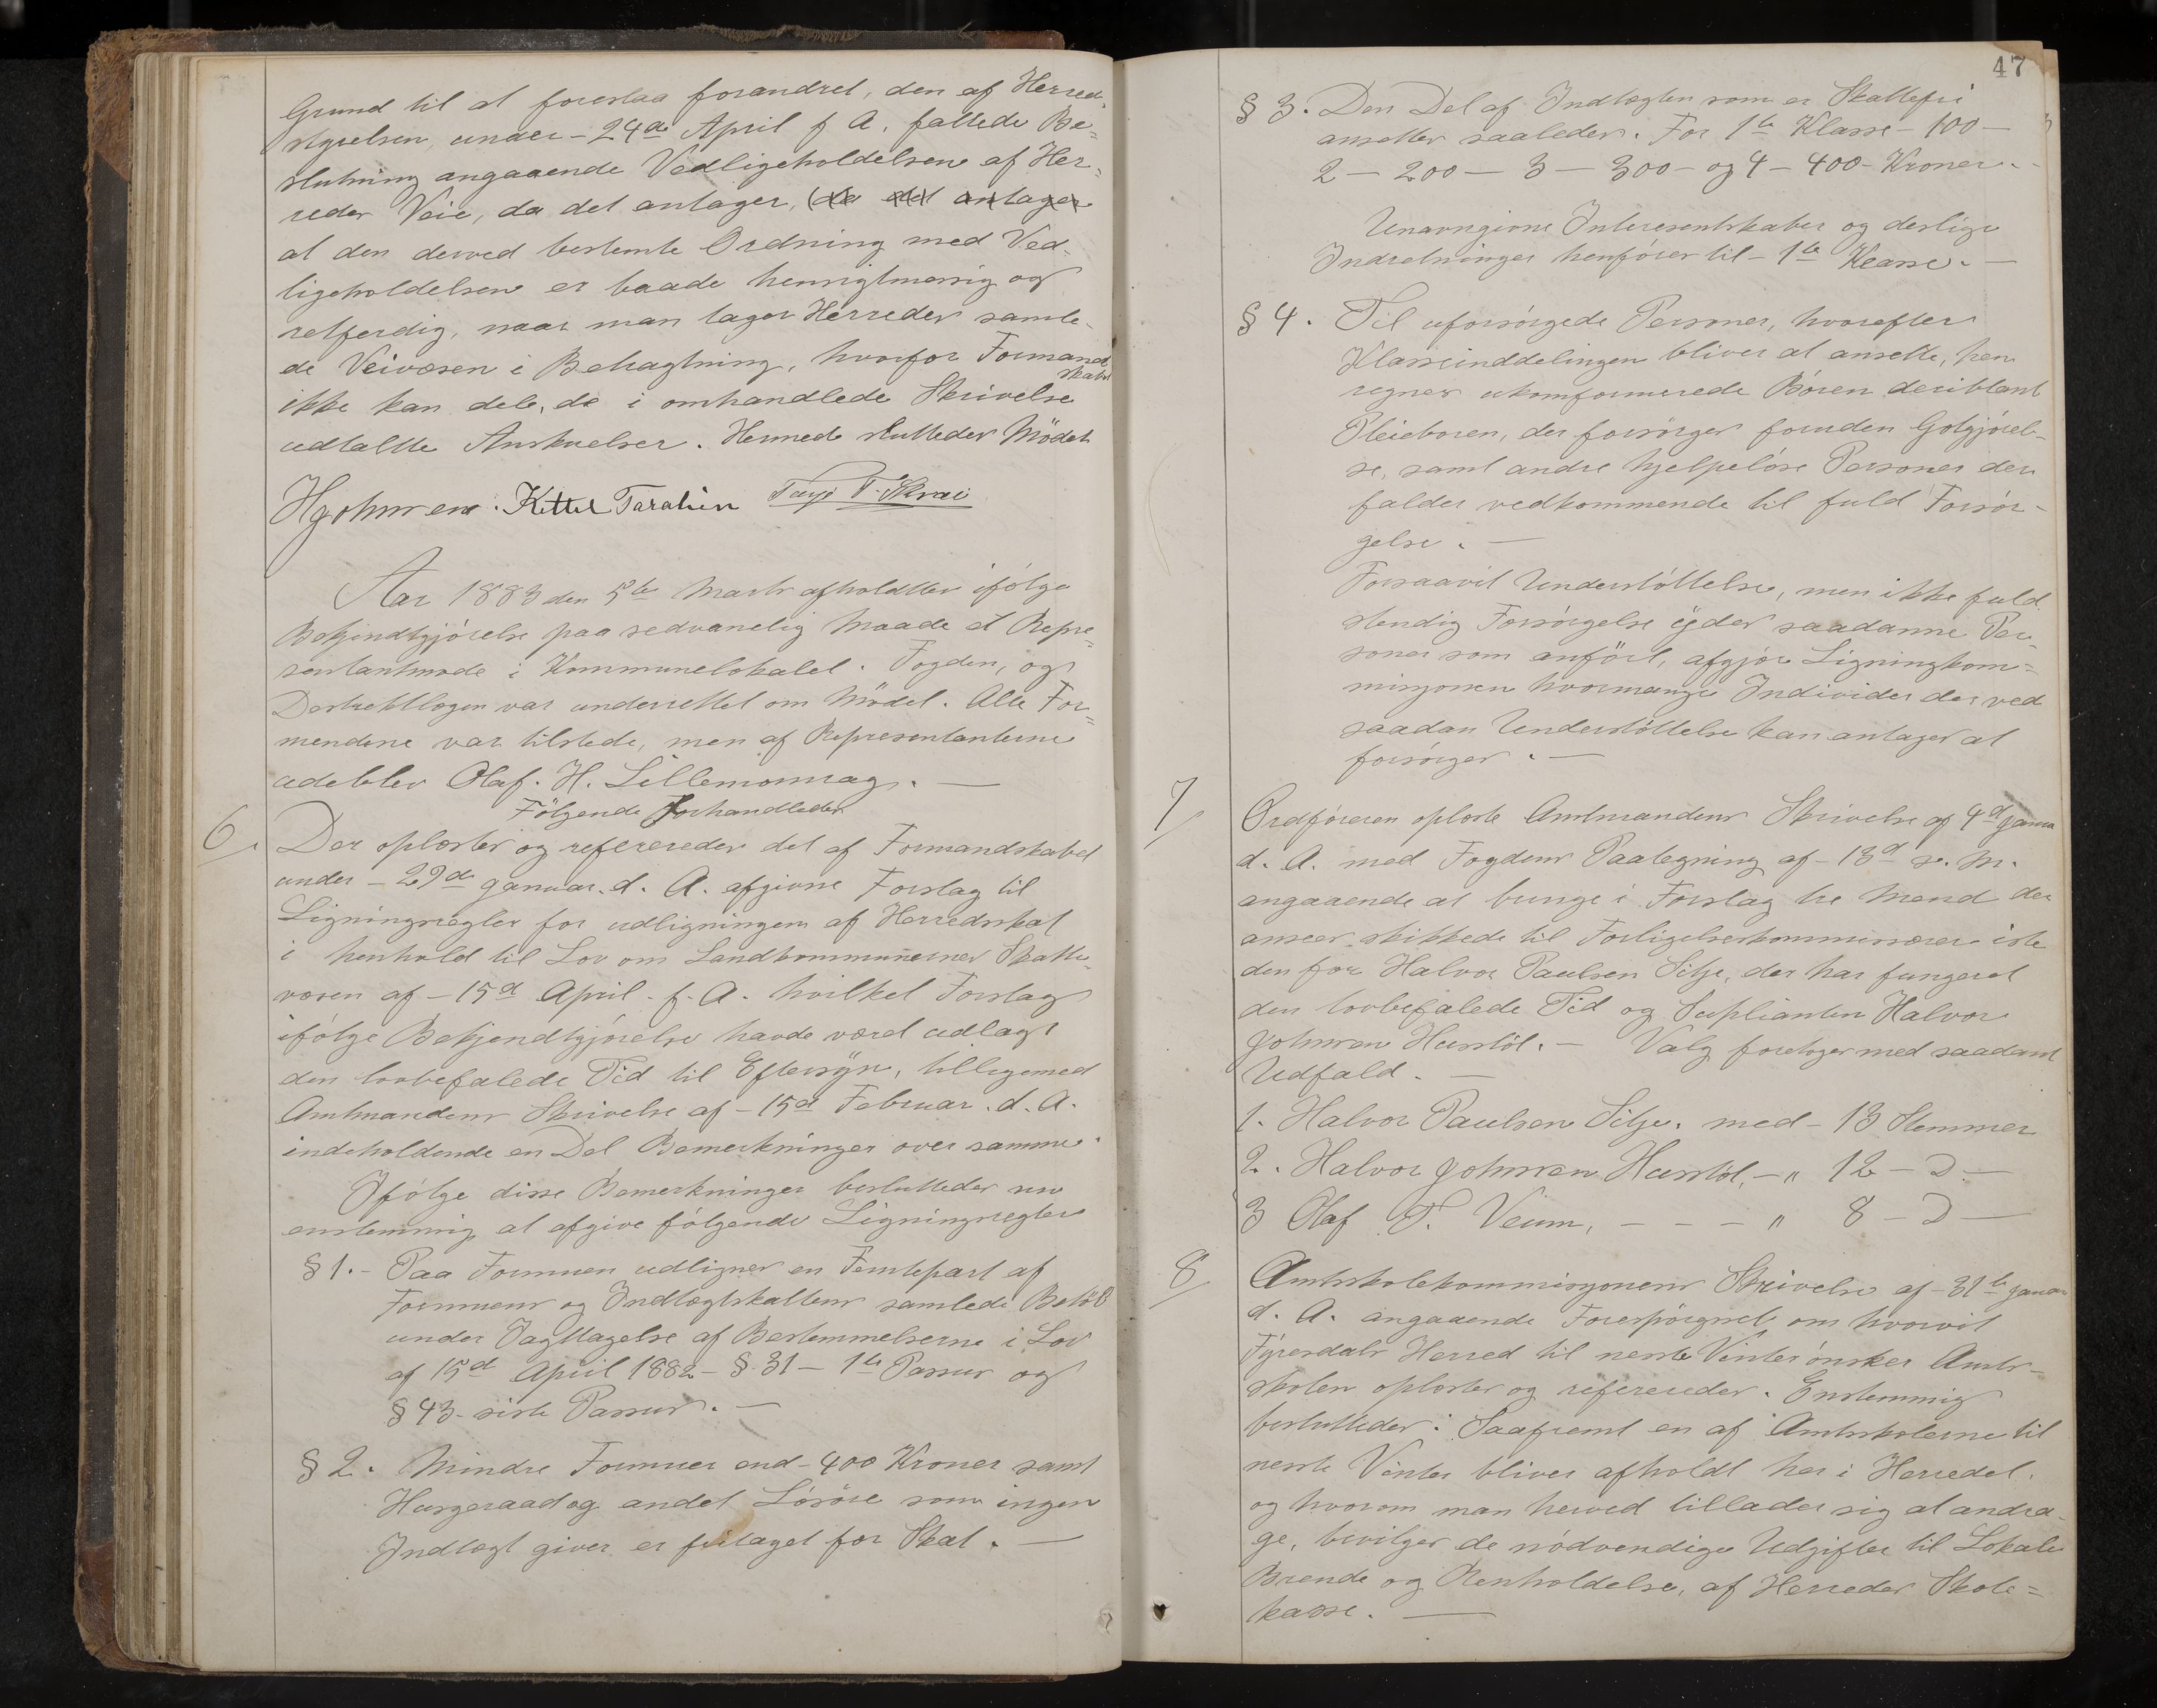 Grund til at foreslaa forandret, den af Herreds-
styrelsen, under - 24de April f A. fattede Be=
slutning angaaende Vedligeholdelsen af Her-
reds Veie, da det antages, (da det antages
at den derved bestemte Ordning med Ved-
ligeholdelsen er baade hensigtmæsig og
retferdig, naar man tager Herreders samle-
de Veivæsen i Betragtning, hvorfor Formand
skabet
ikke kan dele, de i omhandlede Skrivelse
udtalte Anskuelser. Hermede sluttedes Mödet
Hjohnsen. Kittel Taraldsen Tarje T. Skrei
Aar 1883 den 5te Marts afholdtes ifölge
Bekjendtgjörelse paa sedvanelig Maade et Repre=
sentantmøde i Kommunelokalet. Fogden, og
Destriktlægen var underrettet om Mödet. Alle For=
mendene var tilstede, men af Representanterne
udeblev Olaf. H. Lillemoenrag. —
Fölgende forhandledes
6. Der oplæstes og refereredes det af Formandskabet
under - 29de Januar. d. A. afgivne Forslag til
Ligningsregler for udligningen af Herredsskat
i henhold til Lov om Landkommunernes Skatte-
væsen af - 15d April. f. A. hvilket Forslag
ifölge Bekjendtgjörelse havde værd udlagt
den lovbefalede Tid til Eftersyn, tilligemed
Amtmandens Skrivelse af - 15d Februar. d. A.
indeholdende en Del Bemerkninger over samme.
Ifölge disse Bemerkninger besluttedes nu
enstemmig at afgive fölgende Ligningsregler
§ 1. - Paa Formuen udlignes en Femtepart af
Formuens og Indtægtskattens samlede Belöb
under Iagttagelse af Bestemmelserne i Lov
af 15d April 1882 - § 31 - 1te Passus og
§ 43 - siste Passus. —
§ 2. Mindre Formuer end - 400 Kroner samt
Husgeraad og andet Lösöre som ingen
Indtægt giver er fritaget for Skat. —
47
§ 3. Den Del af Indtægten som er Skattefri
ansettes saaledes. For 1te Klasse - 100 -
2 - 200 - 3 - 300 - og 4 - 400 - Kroner. -
Unavngivne Interesentskaber og deslige
Indretninger henföres til - 1te Klasse. —
§ 4. Til uforsörgede Personer, hvorefter
Klasseinddelingen bliver at ansette, hen
regnes ukomfirmerede Bören deriblant
Pleiebören, der forsörges foruden Gotgjörel-
se, samt andre hjelpelöse Personer der
falder vedkommende til fuld Forsör-
gelse. —
Forsaavit Understöttelse, men ikke fuld
stendig Forsörgelse ydes saadanne Per
soner som anfört, afgjör Ligningkom=
misjonen hvormange Individer der ved
saadan Understöttelse kan antages at
forsörges. —
7 Ordföreren oplæste Amtmandens Skrivelse af 4d Janua
d. A. med Fogdens Paategning af - 13d s. M.
angaaende at bringe i Forslag tre Mend der
anseer skikkede til Forligelseskommissærer iste
den for Halvor Paulsen Silje, der har fungeret
den lovbefalede Tid og Suplianten Halvor
Johnsen Husstöl. - Valg foretoges med saadant
Udfald. —
1. Halvor Paulsen Silje. med - 13 Stemmer
2. Halvor Johnsen Husstöl. - " 12 - D -
3 Olaf T. Veum, - - - " 8 - D -
8 Amtsskolekommisjonens Skrivelse af - 31te Januar
d. A. angaaende Forespörgsel om hvorvit
Fyresdals Herred til neste Vinter önsker Amts-
skolen oplæstes og refereredes. Enstemmig
besluttedes: Saafremt en af Amtsskolerne til
neste Vinter bliver afholdt her i Herredet,
og hvorom man herved tillader sig at andra-
ge, bevilges de nödvendige Udgifter til Lokale
Brende og Renholdelse, af Herredes Skole=
kasse. —